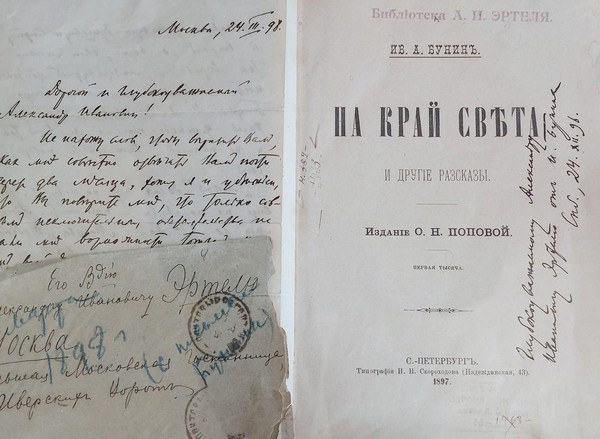 Москва, 24.III.98.
Дорогой и глубокоуважаемый
Александр Иванович!
Не нахожу слов, чтобы выразить Вам,
как мне совестно отвечать Вам почти
через два месяца, хотя я и убежден,
что Вы поверите мне, что только
Его Вдію
Александру Ивановичу Эртель
Москва
Большая Московская гостинница,
Иверскихъ воротъ
1898 г.
Библіотека А. И. ЭРТЕЛЯ.
ИВ. А. БУНИНЪ.
НА КРАЙ СВѢТА
И ДРУГІЕ РАЗСКАЗЫ.
Изданіе О. Н. ПОПОВОЙ.
ПЕРВАЯ ТЫСЯЧА.
С.-ПЕТЕРБУРГЪ.
Типографія И. Н. Скороходова (Надеждинская, 43).
1897.
Глубокоуважаемому Александру
Ивановичу Эртелю отъ И. Бунина
Спб., 24.XII.96.